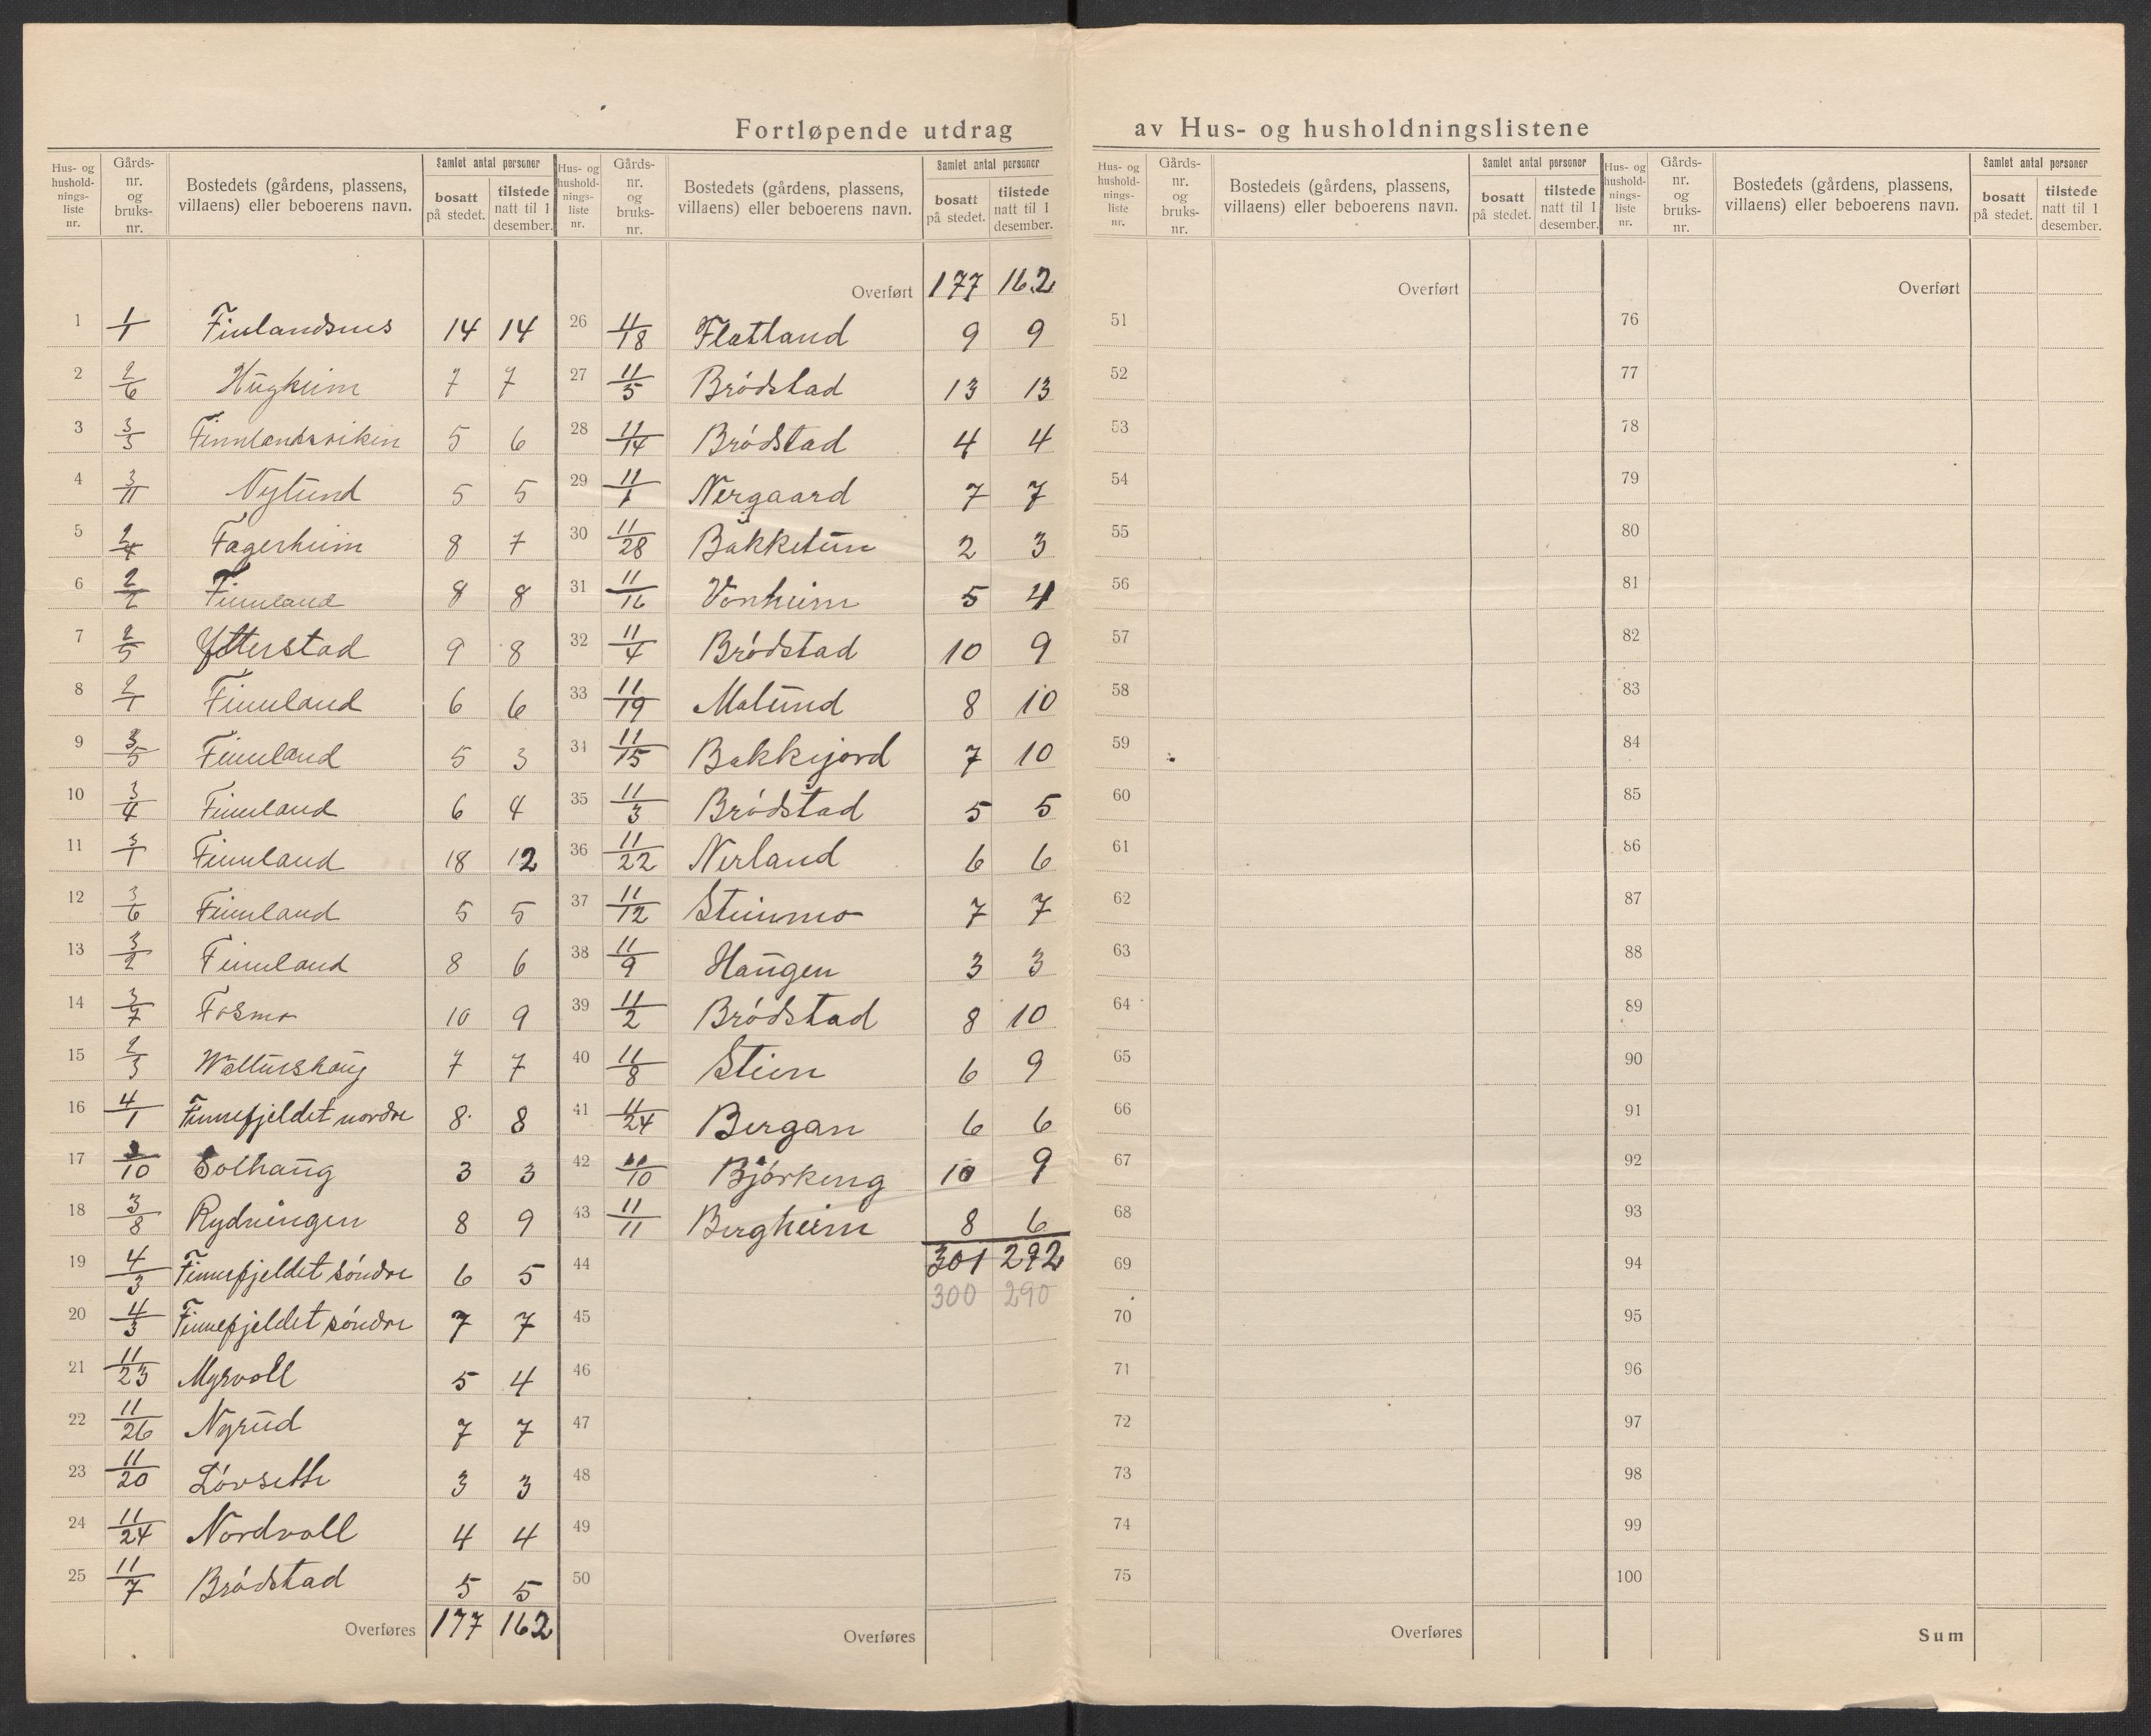 Fortløpende utdrag av Hus- og husholdningslistene
Hus- og husholdnings-liste nr. | Gårds-nr. og bruks-nr. | Bostedets (gårdens, plassens, villaens) eller beboerens navn. | Samlet antal personer | bosatt på stedet. | tilstede natt til 1 desember.
1 1/1 Finlandsnes 14 14
2 2/6 Haugheim 7 7
3 3/3 Finnlandsviken 5 6
4 3/11 Nylund 5 5
5 2/4 Fagerheim 8 7
6 2/2 Finnland 8 8
7 2/5 Ytterstad 9 8
8 2/1 Finnland 6 6
9 3/5 Finnland 5 3
10 3/4 Finnland 6 4
11 3/1 Finnland 18 12
12 3/6 Finnland 5 5
13 3/2 Finnland 8 6
14 3/7 Fosmo 10 9
15 2/3 7 7
16 4/1 Finnefjeldet nordre 8 8
17 3/10 Solhaug 3 3
18 3/8 Rydningen 8 9
19 4/3 Finnefjeldet søndre 6 5
20 4/3 Finnefjeldet søndre 7 7
21 11/23 Myrvoll 5 4
22 11/26 Nyrud 7 7
23 11/20 Løvsette 3 3
24 11/24 Nordvoll 4 4
25 11/7 Brødstad 5 5
Overføres 177 162
Hus- og husholdnings-liste nr. | Gårds-nr. og bruks-nr. | Bostedets (gårdens, plassens, villaens) eller beboerens navn. | Samlet antal personer | bosatt på stedet. | tilstede natt til 1 desember.
Overført 177 162
26 11/18 Flatland 9 9
27 11/5 Brødstad 13 13
28 11/14 Brødstad 4 4
29 11/1 Nergaard 7 7
30 11/28 Bakketun 2 3
31 11/16 Vonheim 5 4
32 11/4 Brødstad 10 9
33 11/19 Molund 8 10
34 11/15 Bakkejord 7 10
35 11/3 Brødstad 5 5
36 11/22 Nerland 6 6
37 11/12 Steinmo 7 7
38 11/9 Haugen 3 3
39 11/2 Brødstad 8 10
40 11/8 Stein 6 9
41 11/24 Bergan 6 6
42 11/10 Bjørkeng 10 9
43 11/11 Bergheim 8 6
44 301 292
300 290
45
46
47
48
49
50
Overføres
Hus- og husholdnings-liste nr. | Gårds-nr. og bruks-nr. | Bostedets (gårdens, plassens, villaens) eller beboerens navn. | Samlet antal personer | bosatt på stedet. | tilstede natt til 1 desember.
Overført
51
52
53
54
55
56
57
58
59
60
61
62
63
64
65
66
67
68
69
70
71
72
73
74
75
Overføres
Hus- og husholdnings-liste nr. | Gårds-nr. og bruks-nr. | Bostedets (gårdens, plassens, villaens) eller beboerens navn. | Samlet antal personer | bosatt på stedet. | tilstede natt til 1 desember.
Overført
76
77
78
79
80
81
82
83
84
85
86
87
88
89
90
91
92
93
94
95
96
97
98
99
100
Sum